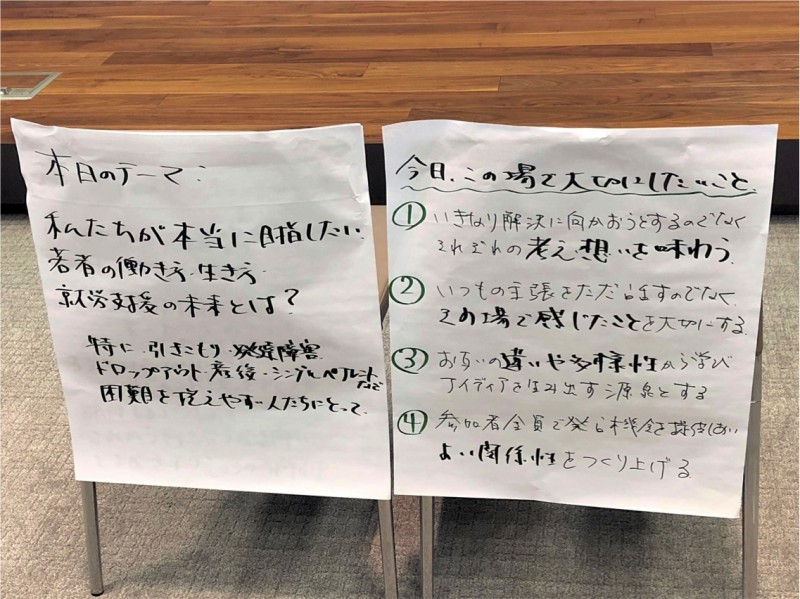 本日のテーマ:
私たちが本当に目指したい
若者の働き方・生き方
就労支援の未来とは?
特に、引きこもり・発達障害
ドロップアウト・産後・シングルペアレントなど
困難を抱えやすい人たちにとって
今日、この場で大切にしたいこと
① いきなり解決に向かおうとするのでなく
それぞれの考え・想いを味わう
② いつもの主張をただ話すのでなく
その場で感じたことを大切にする
③ お互いの違いや多様性から学び
アイディアを生み出す源泉とする
④ 参加者全員で発言機会を提供しあい
よい関係性をつくり上げる